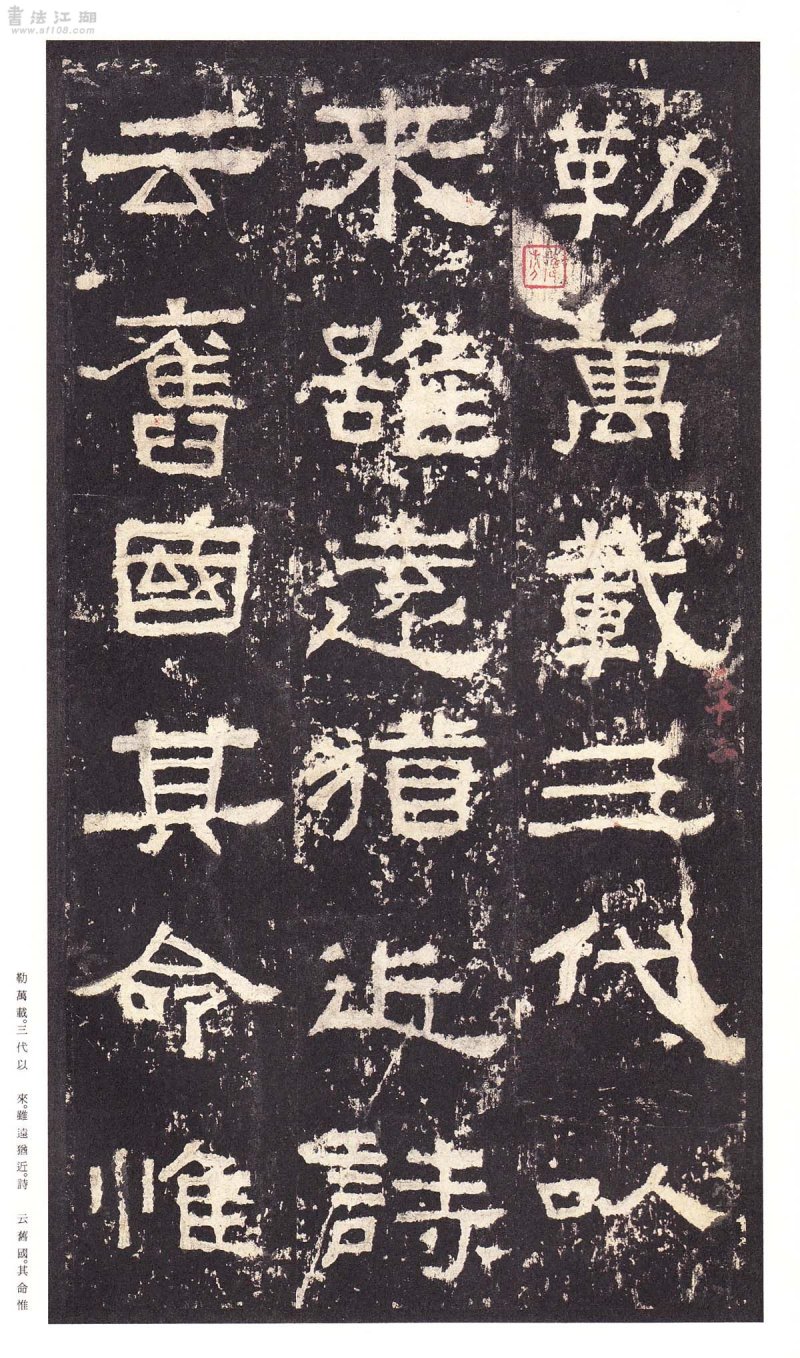 書法江湖
www.af108.com
勒萬載三代以
来雖遠猶近詩
云舊國其命惟
勒萬載。三代以 來。雖遠猶近。詩 云舊國。其命惟